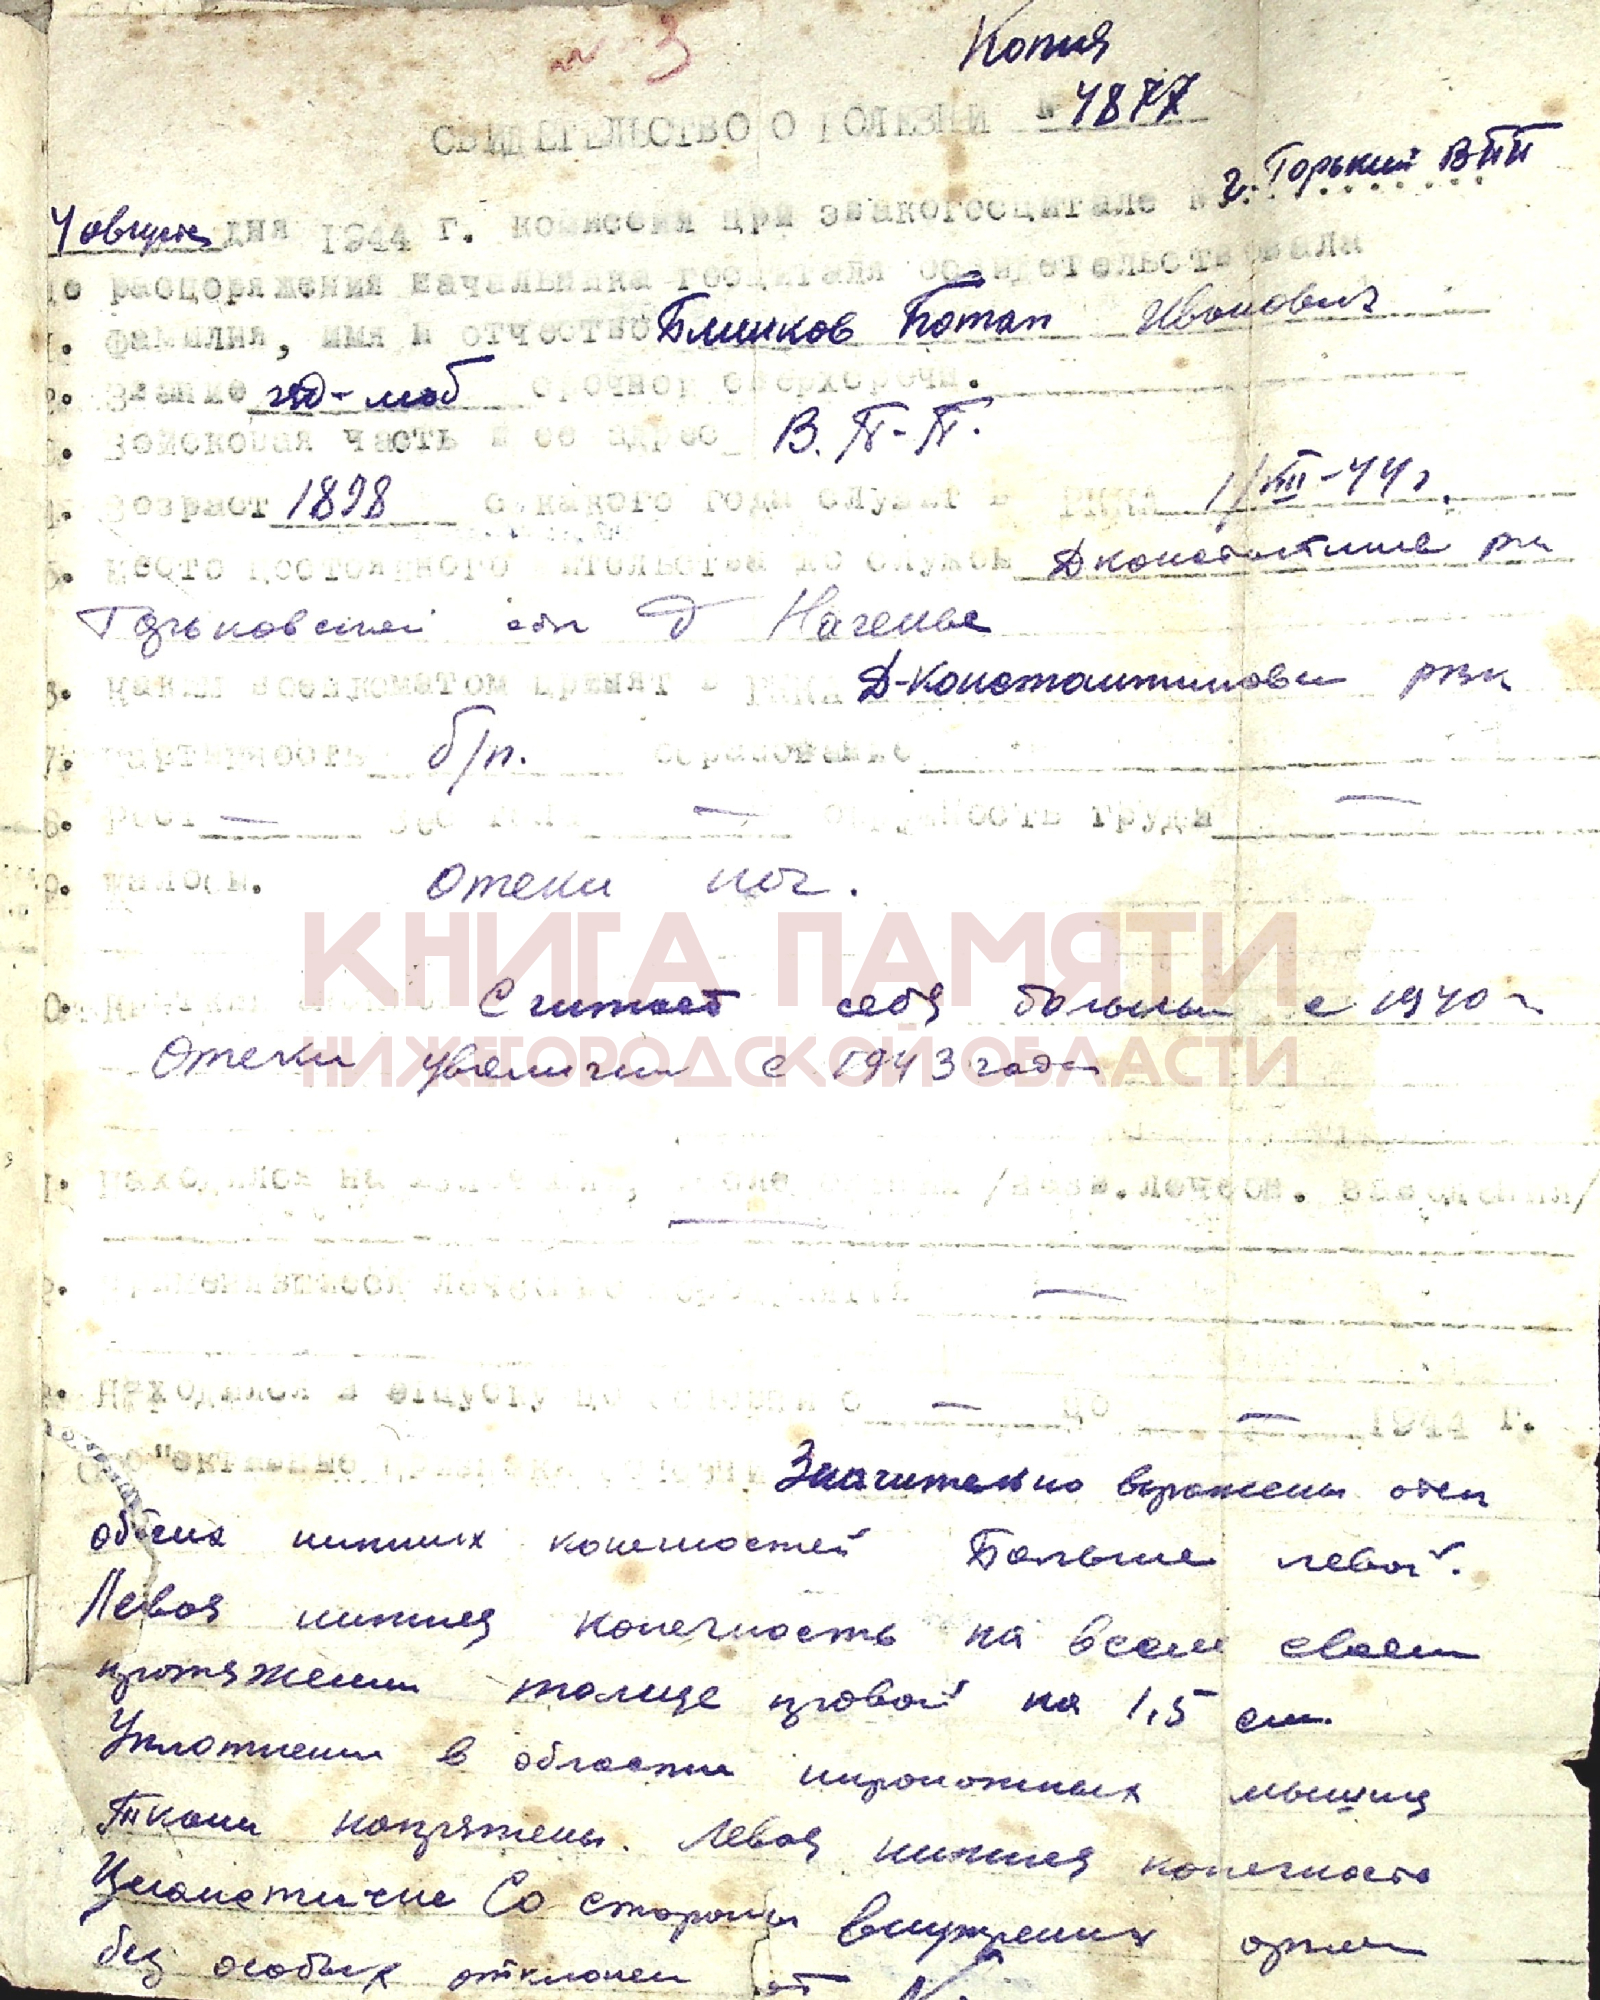 № 3
Копия
СВИДЕТЕЛЬСТВО О БОЛЕЗНИ № 4877
г. Горький ВПП
4 августа дня 1944 г. комиссия при эвакогоспитале в
по распоряжения начальника госпиталя освидетельствовали
1. Фамилия, имя и отчество Блинков Потап Иванович
2. Звание ряд-моб срочной сверхсрочн.
3. Войсковая часть и ее адрес В.П-П.
4. Возраст 1898 с какого года служит в РККА 1/III-44г.
5. Место постоянного жительства до службы Дконстантинов рн
Горьковской обл д
6. Каким военкоматом принят в РККА Д-Константиновск рвк
7. Партийность б/п. образование
8. Рост — Вес тела — окружность груди —
9. Жалобы. Отеки ног.
Считает себя больным с 1940 г
Отеки увеличил с 1943 года
КНИГА ПАМЯТИ
НИЖЕГОРОДСКОЙ ОБЛАСТИ
Находился на /назв.лечебн. заведения/
—
Применявшееся лечение —
Находился в отпуску по болезни с — до — 1944 г.
Об"ективные Значительно выражены отеки
обеих нижних конечностей Больше левой.
Левая нижняя конечность на всем своем
протяжении толще правой на 1,5 см.
Уплотнении в области икроножных мышц
Ткани напряжены. Левая нижняя конечность
Цианотична Со стороны внутренних орган
без особых отклонен от N.